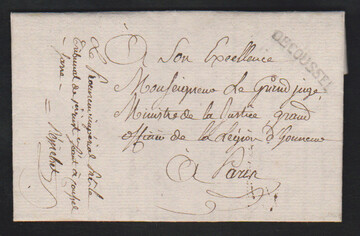 DECOUSSEL
A Son Excellence
Monseigneur Le Grand juge
Ministre de la Justice grand
officier de la Légion d'honneur
à Paris
Le Procureur impérial
Tribunal de